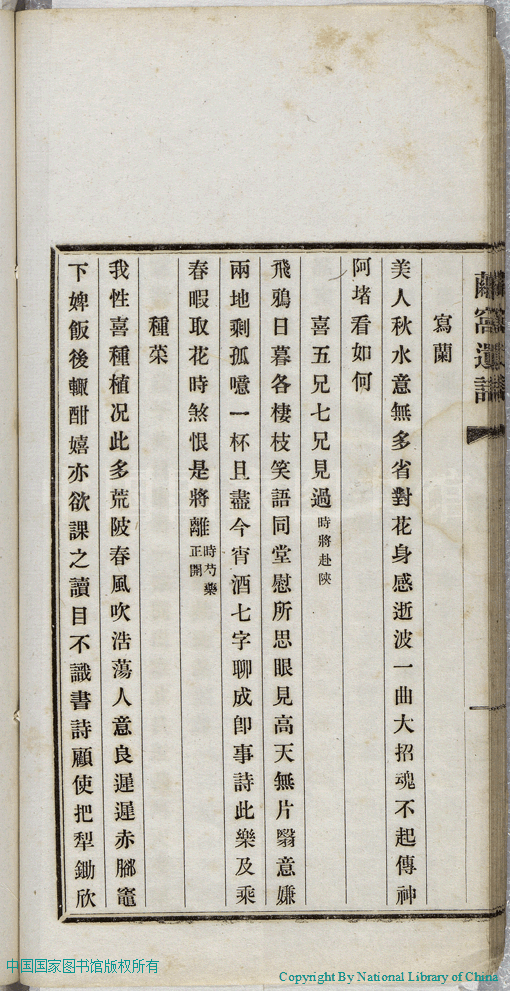 蘭窩遺
寫蘭
美人秋水意無多省對花身感逝波一曲大招魂不起傳神
阿堵看如何
喜五兄七兄見過時將赴陝
飛鴉日暮各棲枝笑語同堂慰所思眼見高天無片翳意嫌
兩地剩孤噫一杯且盡今宵酒七字聊成卽事詩此樂及乘
春暇取花時煞恨是將離時芍藥正開
種菜
我性喜種植况此多荒陂春風吹浩蕩人意良遲遲赤腳竈
下婢飯後輙酣嬉亦欲課之讀目不識書詩顧使把犁鋤欣
中国国家图书馆版权所有
Copyright By National Library of China